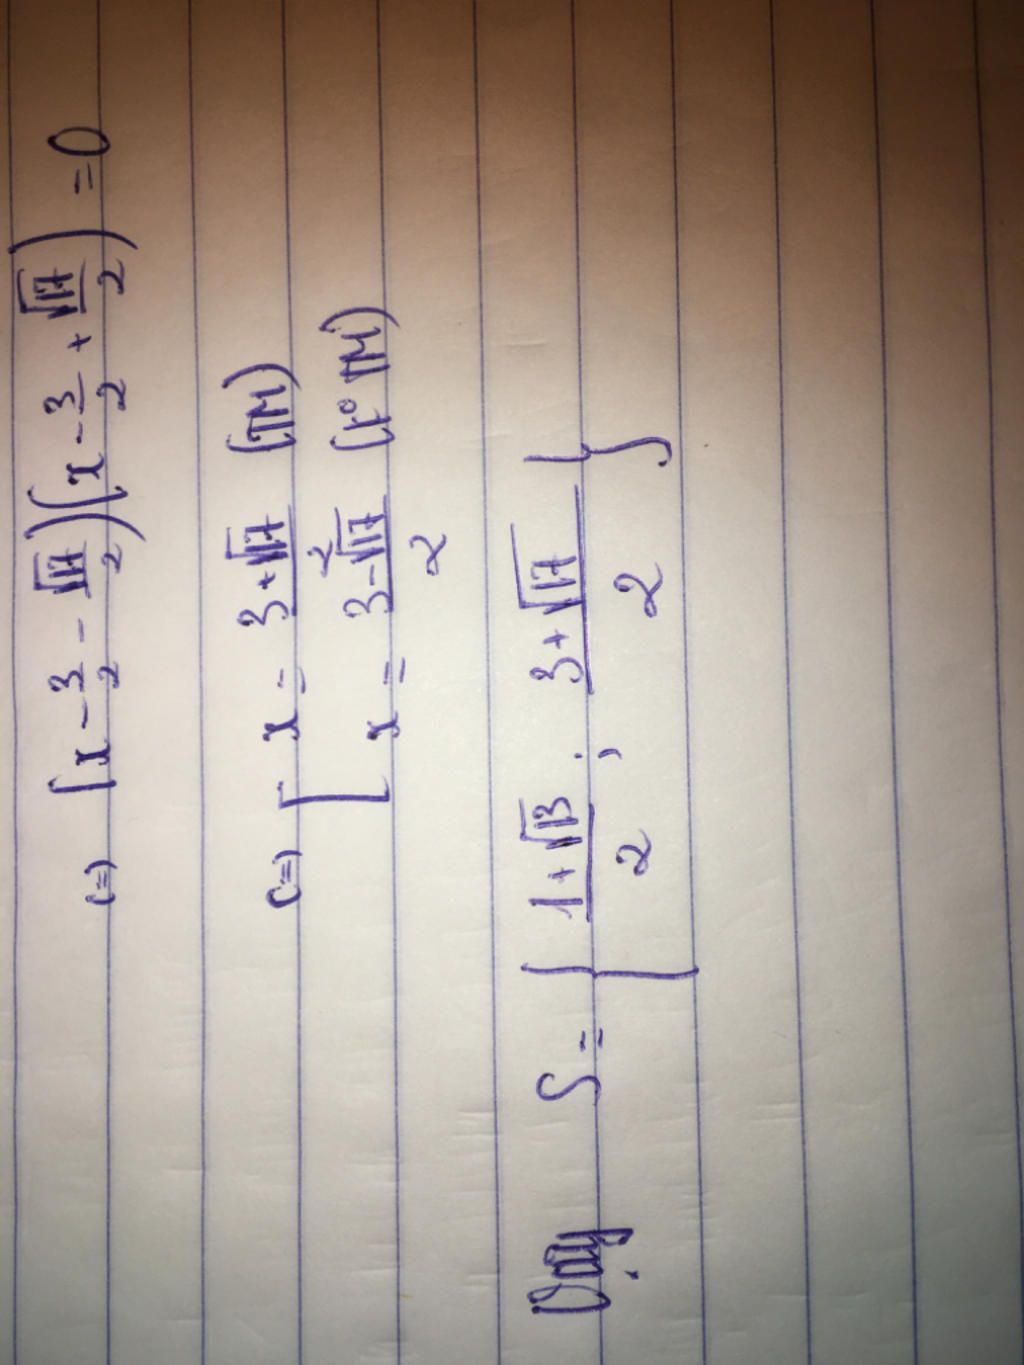 (=) (x - 3/2 - √17/2)(x - 3/2 + √17/2) = 0
(=) [ x = (3+√17)/2 (TM)
x = (3-√17)/2 (k° TM)
Vậy S = { (1+√13)/2 ; (3+√17)/2 }